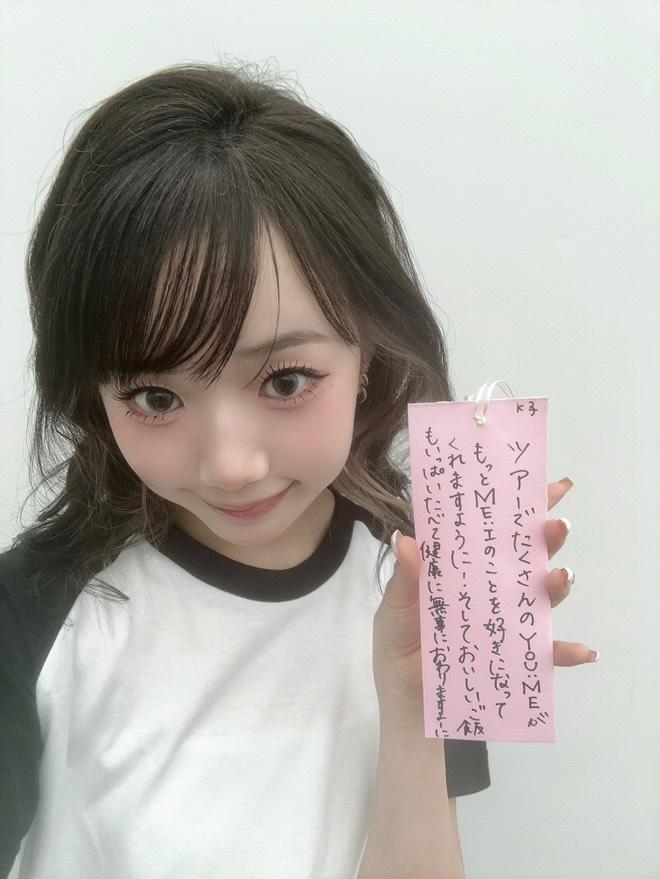 K子
ツアーでたくさんのYOU:MEが
もっとME:Iのことを好きになって
くれますように!そしておいしいご飯
もいっぱいたべて健康に無事におわりますよーに